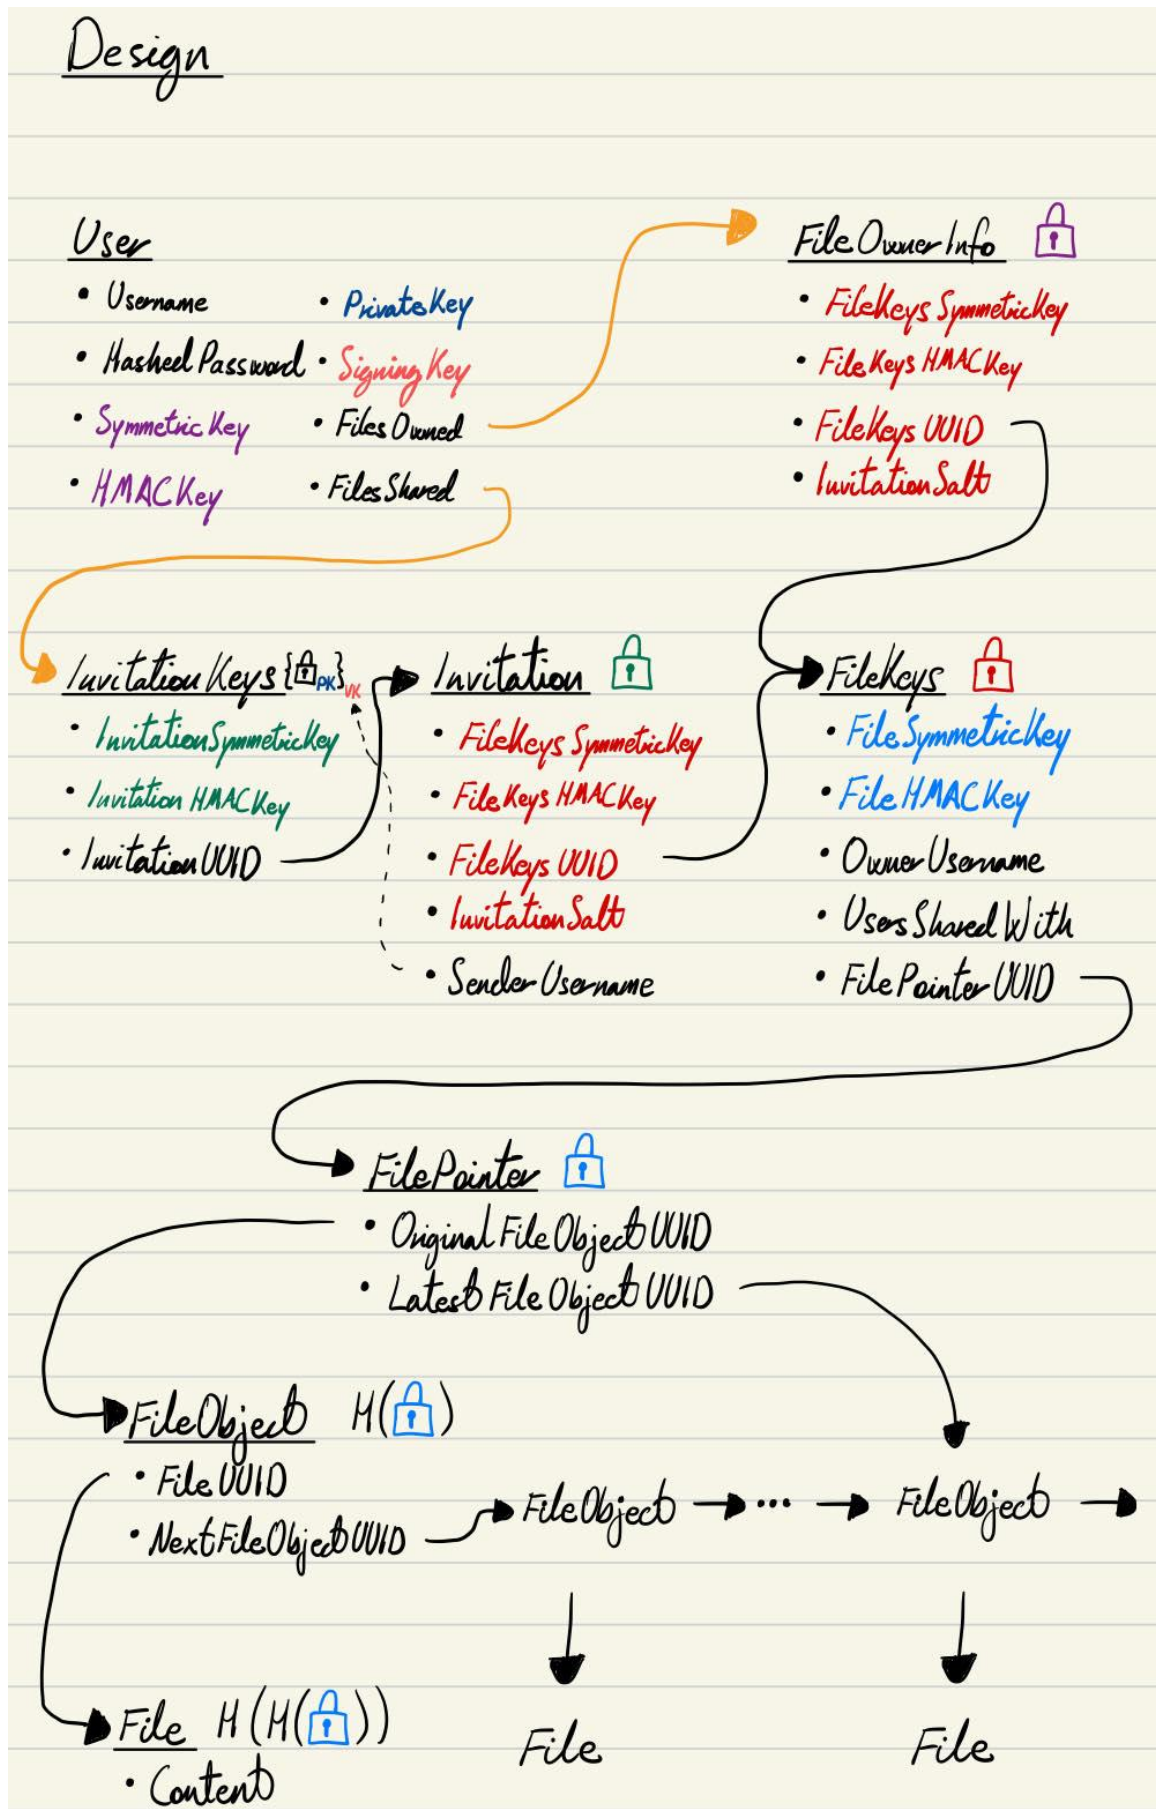 Design
User
• Username
• Hashed Password
• Symmetric Key
• HMAC Key
• Private Key
• Signing Key
• Files Owned
• Files Shared
FileOwnerInfo
• FileKeys SymmetricKey
• FileKeys HMACKey
• FileKeys UUID
• InvitationSalt
InvitationKeys { PK} VK
• InvitationSymmetricKey
• Invitation HMACKey
• InvitationUUID
Invitation
• FileKeys SymmetricKey
• FileKeys HMACKey
• FileKeys UUID
• InvitationSalt
• Sender Username
FileKeys
• FileSymmetricKey
• File HMAC Key
• OwnerUsername
• UsersSharedWith
• FilePointerUUID
FilePointer
• OriginalFileObjectUUID
• LatestFileObjectUUID
FileObject H( )
• FileUUID
• NextFileObjectUUID
FileObject ... FileObject
File H(H( ))
• Content
File
File